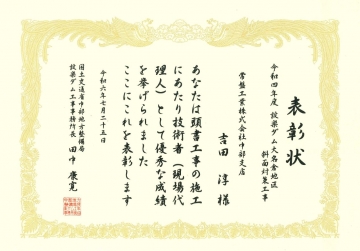 表彰状
令和四年度 設楽ダム大名倉地区
斜面対策工事
常盤工業株式会社中部支店
吉田 淳 様
あなたは頭書工事の施工
にあたり技術者（現場代
理人）として優秀な成績
を挙げられました
ここにこれを表彰します
令和六年七月二十五日
国土交通省中部地方整備局
設楽ダム工事事務所長 田中 康寛